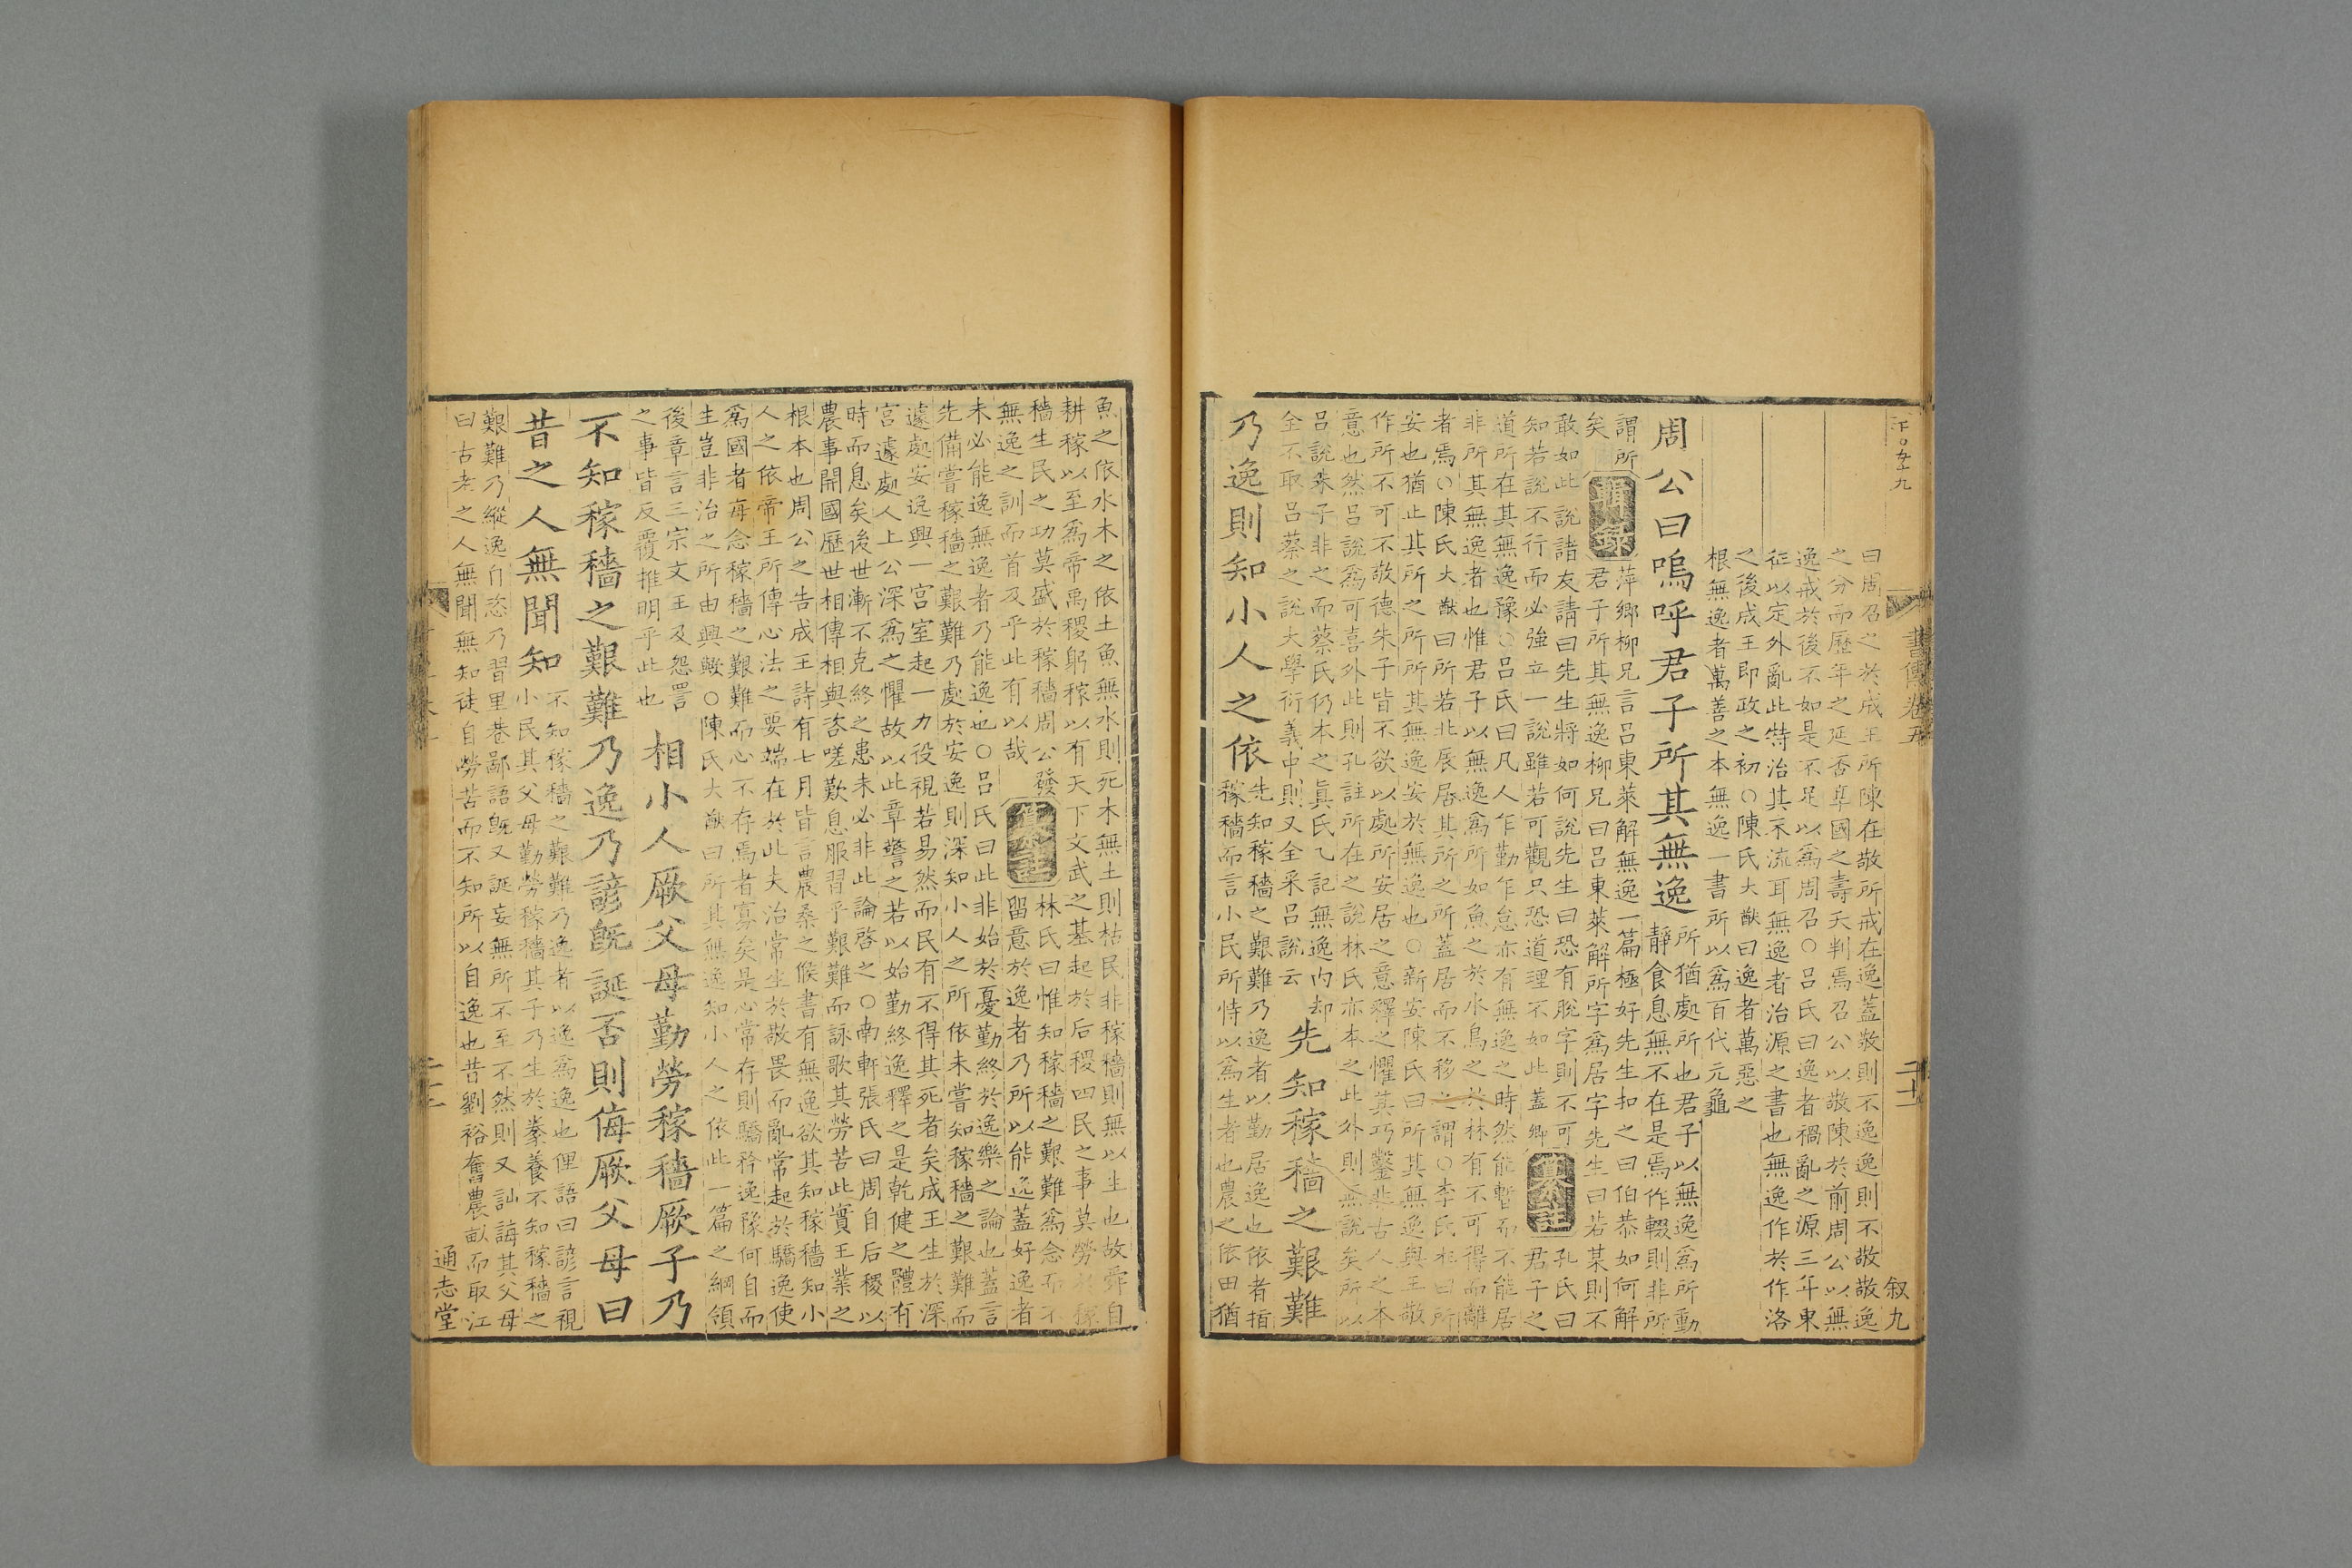 下○五十九
書傳卷五
二十二
叙九
曰周召之於成王所陳在敬所戒在逸蓋敬則不逸逸則不敬敬逸
之分而歷年之延否享國之壽夭判焉召公以敬陳於前周公以無
逸戒於後不如是不足以爲周召○呂氏曰逸者禍亂之源三年東
征以定外亂此特治其末流耳無逸者治源之書也無逸作於作洛
之後成王即政之初○陳氏大猷曰逸者萬惡之
根無逸者萬善之本無逸一書所以爲百代元龜
周公曰嗚呼君子所其無逸
所猶處所也君子以無逸爲所動
靜食息無不在是焉作輟則非所
謂所
矣
輯錄
萍鄉柳兄言呂東萊解無逸一篇極好先生扣之曰伯恭如何解
君子所其無逸柳兄曰呂東萊解所字爲居字先生曰若某則不
敢如此說諸友請曰先生將如何說先生曰恐有脫字則不可
知若說不行而必強立一說雖若可觀只恐道理不如此蓋卿
纂註
孔氏曰
君子之
道所在其無逸豫○呂氏曰凡人乍勤乍怠亦有無逸之時然能暫而不能居
非所其無逸者也惟君子以無逸爲所如魚之於水鳥之於林有不可得而離
者焉○陳氏大猷曰所若北辰居其所之所蓋居而不移之謂○李氏杞曰所
安也猶止其所之所所其無逸安於無逸也○新安陳氏曰所其無逸與王敬
作所不可不敬德朱子皆不欲以處所安居之意釋之懼其巧鑿非古人之本
意也然呂說爲可喜外此則孔註所在之說林氏亦本之此外則無說矣所以
呂說朱子非之而蔡氏仍本之眞氏乙記無逸內却
全不取呂蔡之說大學衍義中則又全采呂說云
先知稼穡之艱難
乃逸則知小人之依
先知稼穡之艱難乃逸者以勤居逸也依者指
稼穡而言小民所恃以爲生者也農之依田猶
魚之依水木之依土魚無水則死木無土則枯民非稼穡則無以生也故舜自
耕稼以至爲帝禹稷躬稼以有天下文武之基起於后稷四民之事莫勞於稼
穡生民之功莫盛於稼穡周公發
無逸之訓而首及乎此有以哉
纂註
林氏曰惟知稼穡之艱難爲念而不
留意於逸者乃所以能逸蓋好逸者
未必能逸無逸者乃能逸也○呂氏曰此非始於憂勤終於逸樂之論也蓋言
先備嘗稼穡之艱難乃處於安逸則深知小人之所依未嘗知稼穡之艱難而
遽處安逸興一宮室起一力役視若易然而民有不得其死者矣成王生於深
宮遽處人上公深爲之懼故以此章警之若以始勤終逸釋之是乾健之體有
時而息矣後世漸不克終之患未必非此論啓之○南軒張氏曰周自后稷以
農事開國歷世相傳相與咨嗟歎息服習乎艱難而詠歌其勞苦此實王業之
根本也周公之告成王詩有七月皆言農桑之候書有無逸欲其知稼穡知小
人之依帝王所傳心法之要端在於此夫治常生於敬畏而亂常起於驕逸使
爲國者每念稼穡之艱難而心不存焉者寡矣是心常存則驕矜逸豫何自而
生豈非治之所由興歟○陳氏大猷曰所其無逸知小人之依此一篇之綱領
後章言三宗文王及怨詈
之事皆反覆推明乎此也
相小人厥父母勤勞稼穡厥子乃
不知稼穡之艱難乃逸乃諺旣誕否則侮厥父母曰
昔之人無聞知
不知稼穡之艱難乃逸者以逸爲逸也俚語曰諺言視
小民其父母勤勞稼穡其子乃生於豢養不知稼穡之
艱難乃縱逸自恣乃習里巷鄙語旣又誕妄無所不至不然則又訕誨其父母
曰古老之人無聞無知徒自勞苦而不知所以自逸也昔劉裕奮農畝而取江
通志堂